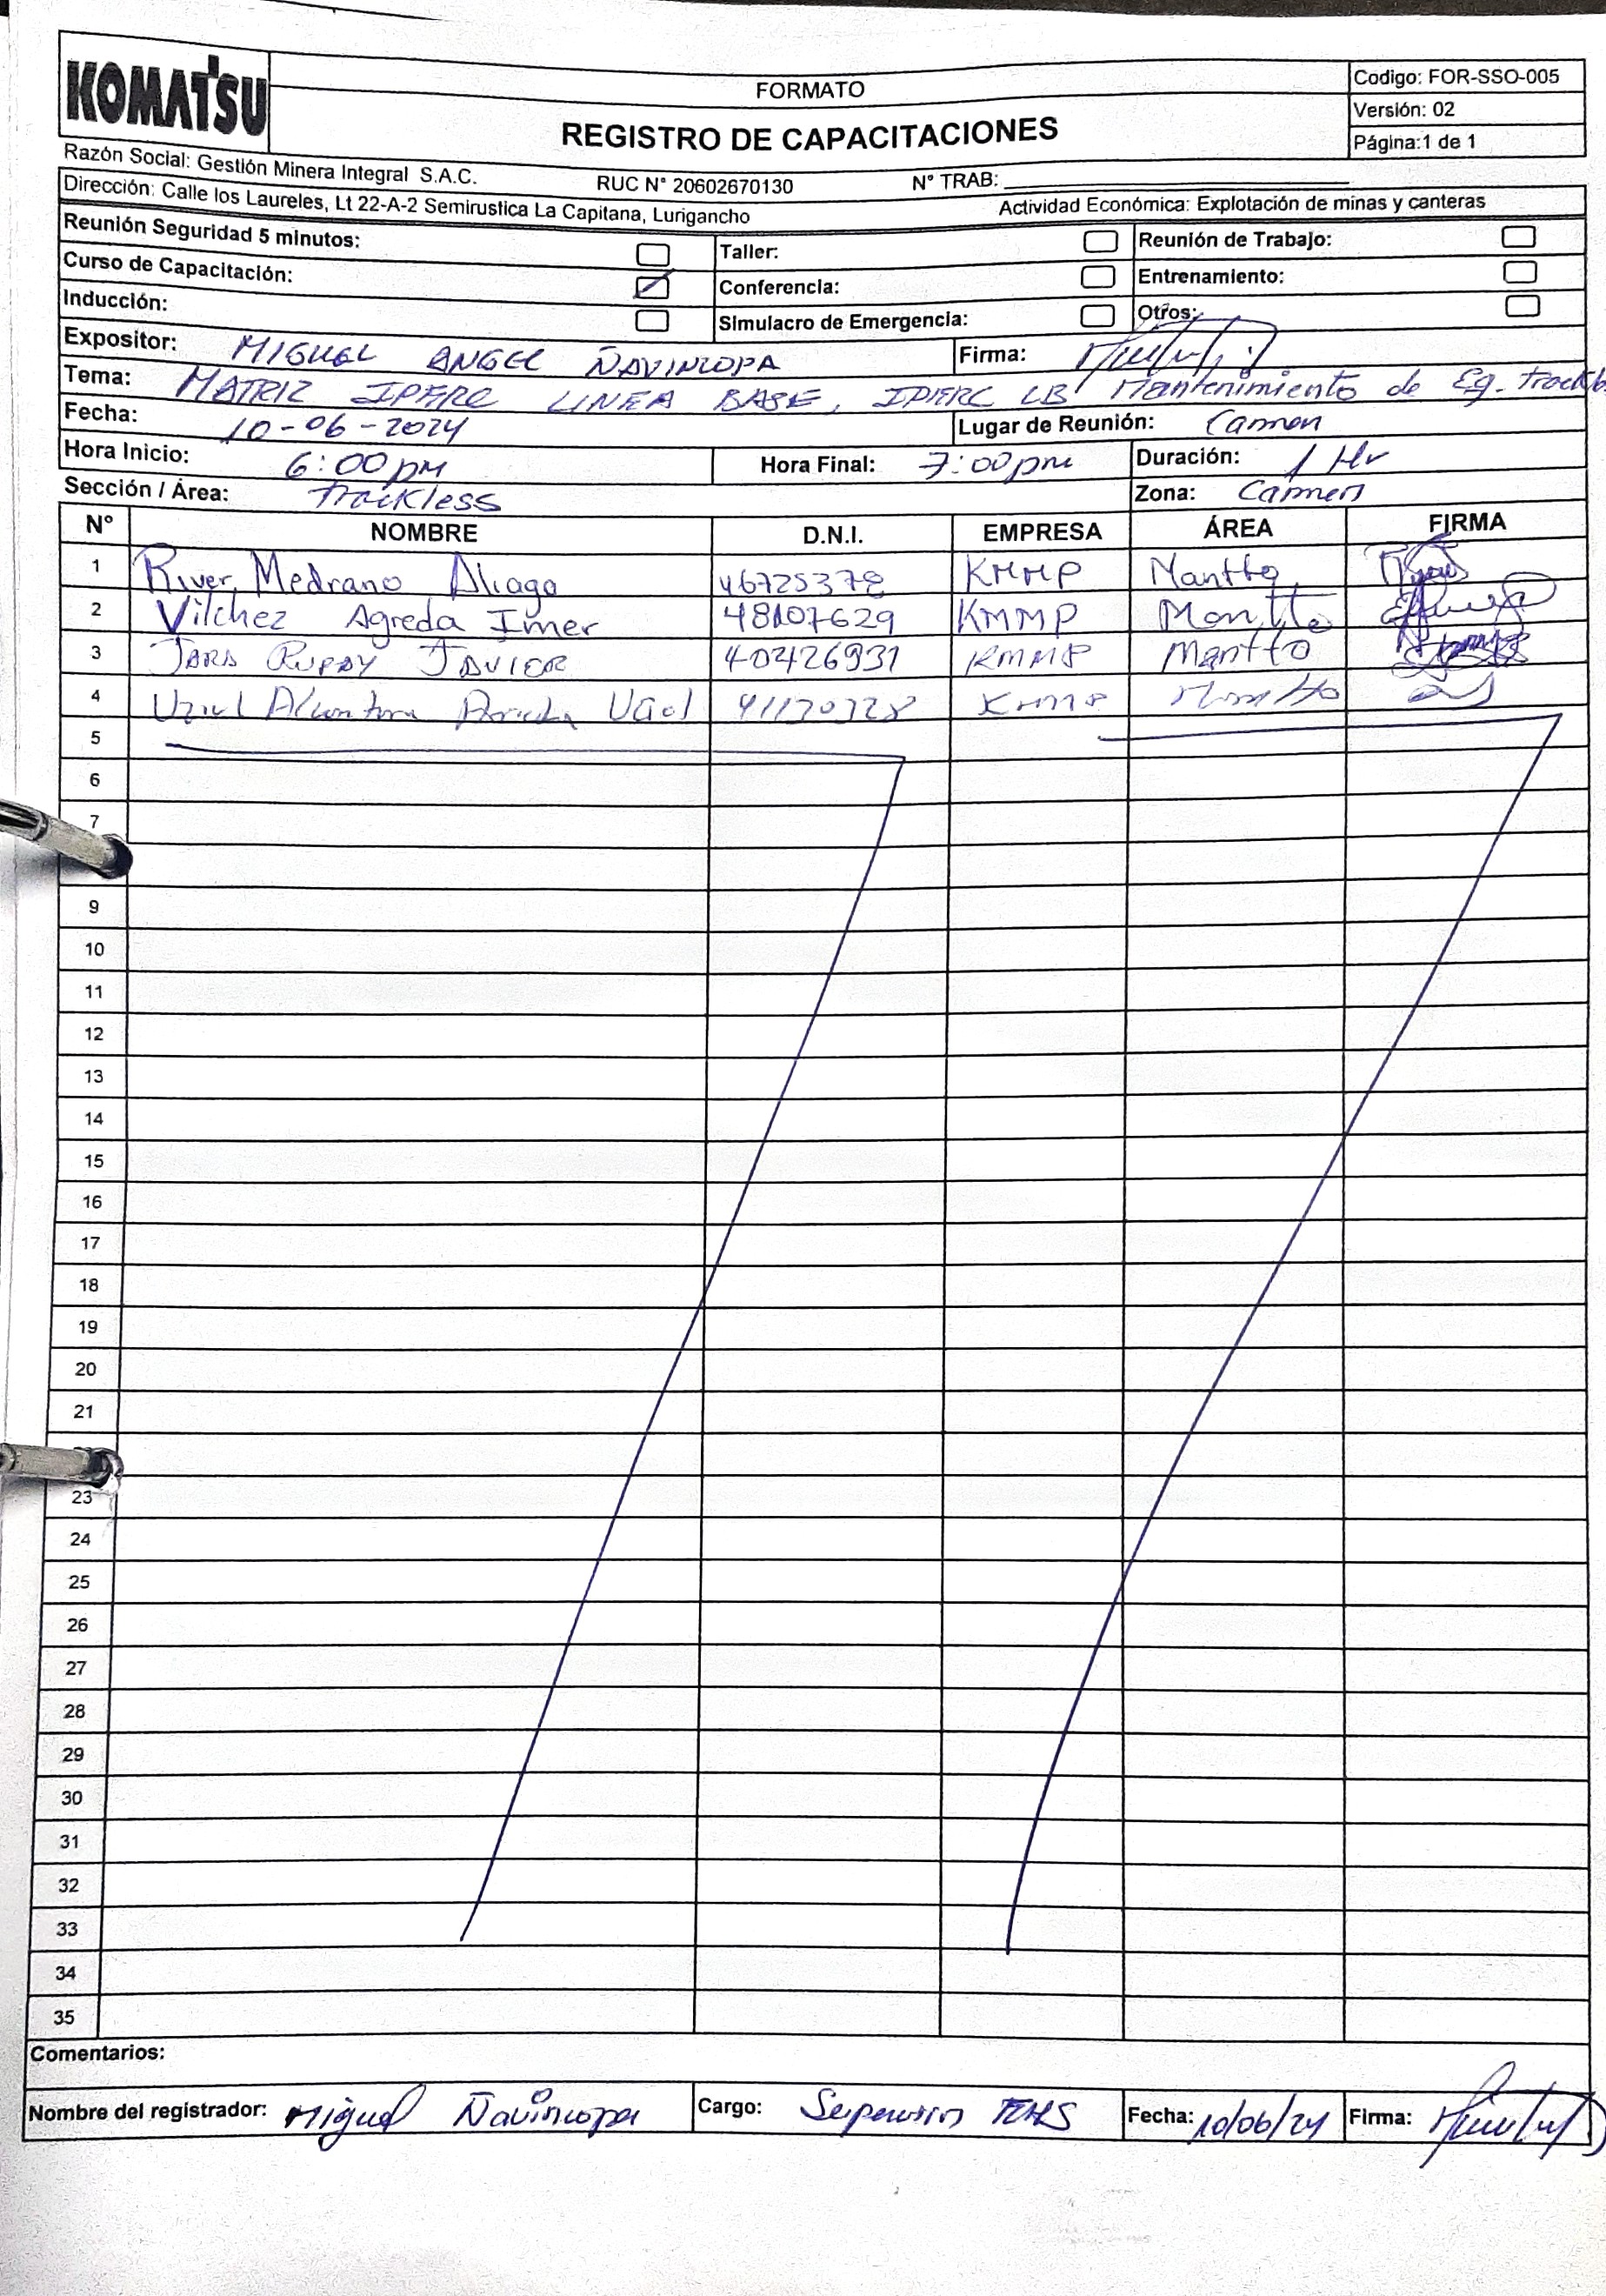 KOMATSU
FORMATO
REGISTRO DE CAPACITACIONES
Codigo: FOR-SSO-005
Versión: 02
Página:1 de 1
Razón Social: Gestión Minera Integral S.A.C. RUC N° 20602670130 N° TRAB:
Dirección: Calle los Laureles, Lt 22-A-2 Semirustica La Capitana, Lurigancho Actividad Económica: Explotación de minas y canteras
Reunión Seguridad 5 minutos: Taller: Reunión de Trabajo:
Curso de Capacitación: Conferencia: Entrenamiento:
Inducción: Simulacro de Emergencia: Otros:
Expositor: MIGUEL ANGEL ÑAVINCOPA Firma:
Tema: MATRIZ IPERC LINEA BASE, IPERC LB Mantenimiento de Eq.
Fecha: 10-06-2024 Lugar de Reunión: Carmen
Hora Inicio: 6:00pm Hora Final: 7:00pm Duración: 1 Hr
Sección / Área: Trackless Zona: Carmen
N° NOMBRE D.N.I. EMPRESA ÁREA FIRMA
1 River Medrano Aliaga 46725378 KMMP Mantto
2 Vilchez Agreda Imer 48107629 KMMP Mantto
3 JARA RUPAY JAVIER 40426931 KMMP Mantto
4 KMMP Mantto
5
6
7
9
10
11
12
13
14
15
16
17
18
19
20
21
23
24
25
26
27
28
29
30
31
32
33
34
35
Comentarios:
Nombre del registrador: Miguel Ñavincopa Cargo: Supervisor Fecha: 10/06/24 Firma: